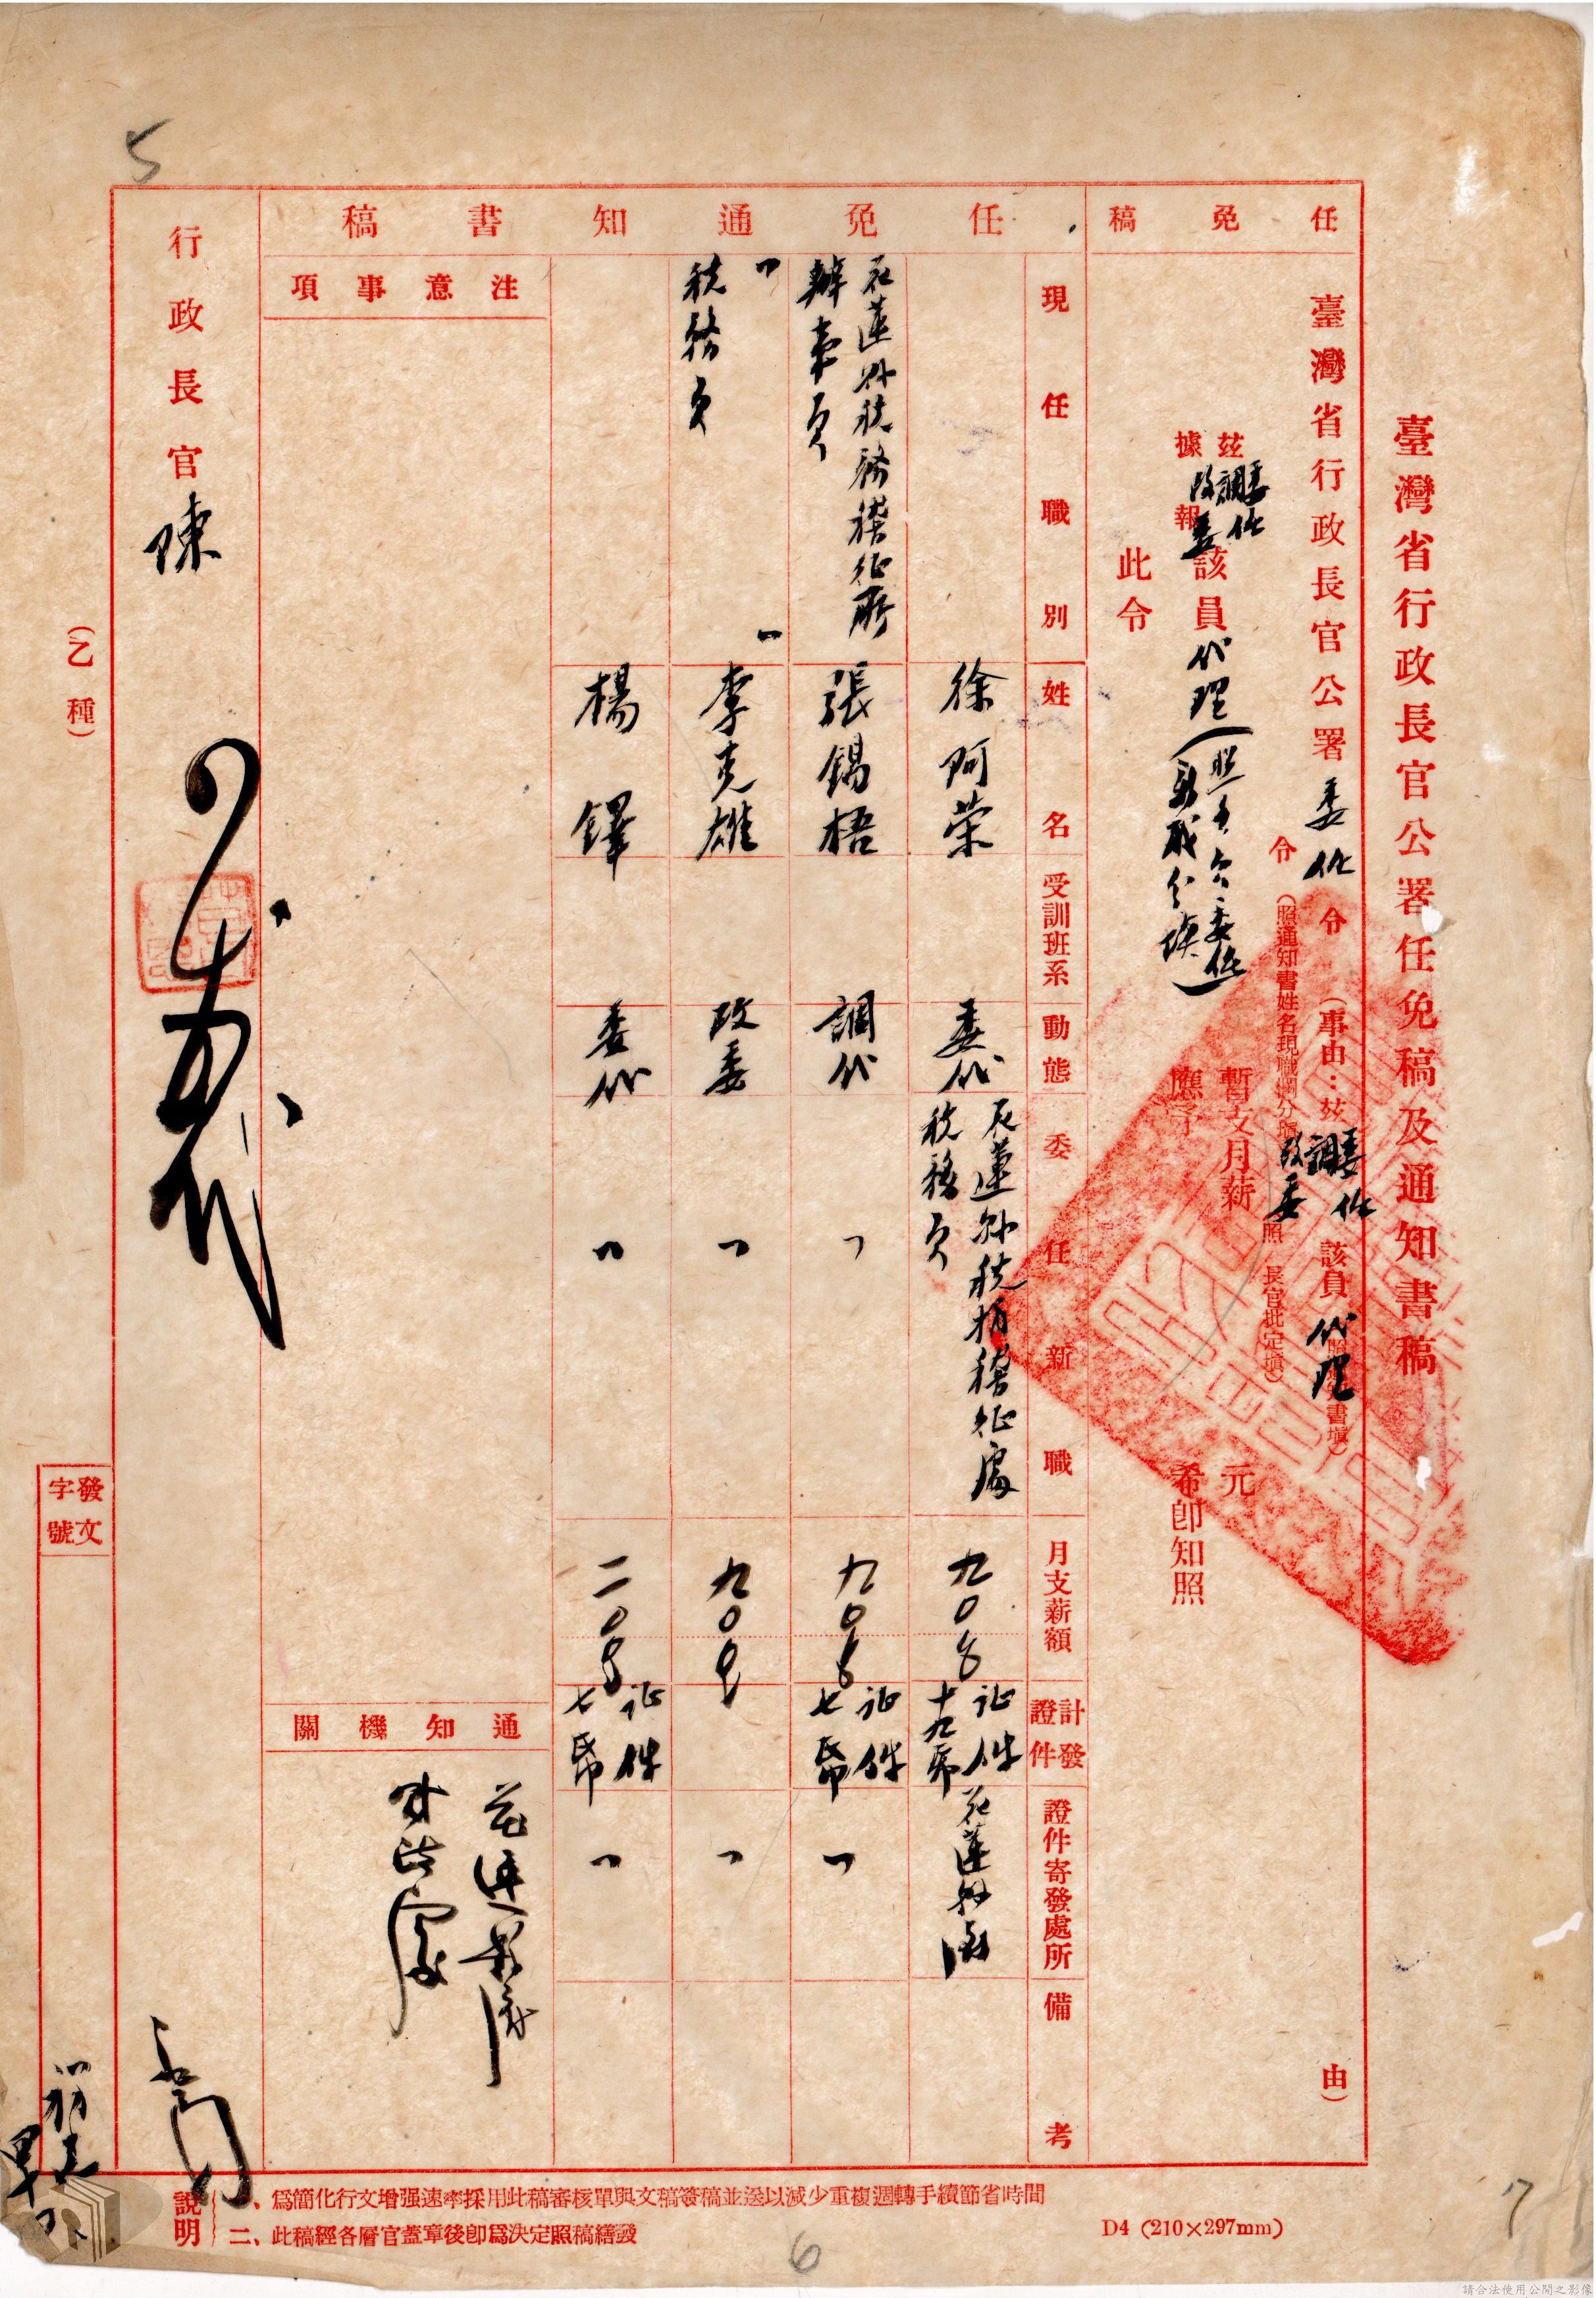 臺灣省行政長官公署任免稿及通知書稿
任免稿
臺灣省行政長官公署委代令(事由：玆委代調改委該員代理
由)
令(照通知書姓名現職欄分填
照長官批定填)
玆委代調
據報改委該員代理(照委令委代新職分填)
暫支月薪
元
應予
希卽知照
此令
任免通知書稿
現任職別
姓名
受訓班系
動態
委任新職
月支薪額
計發證件
證件寄發處所
備考
徐阿榮
委代
花蓮縣稅捐稽征處
稅務員
九〇
证件十九帋
花蓮縣府
花蓮縣稅務稽征所
辦事員
張錫梧
調代
〃
九〇
证件七帋
〃
〃
稅務員
李克雄
改委
〃
九〇
〃
楊鐸
委代
〃
二〇〇
证件七帋
〃
注意事項
通知機關
花蓮縣府
財政處
行政長官陳
(乙種)
發文字號
說明
一、爲簡化行文增强速率採用此稿審核單與文稿簽稿並送以減少重複週轉手續節省時間
二、此稿經各層官蓋章後卽爲決定照稿繕發
D4 (210×297mm)
5
6
7
請合法使用公開之影像